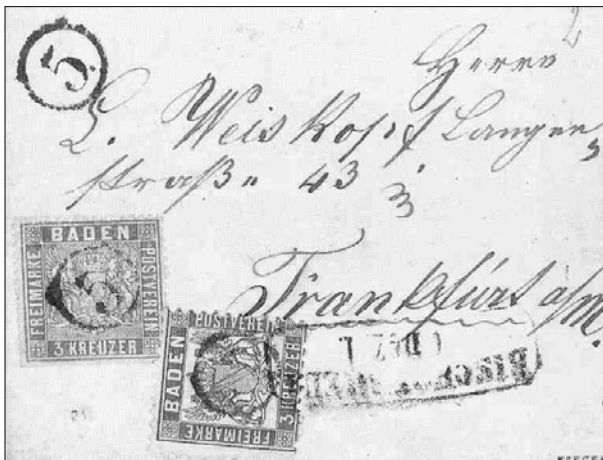 2
5.
Herrn
L. Weiskopf Langen
straße 43
3
Frankfurt a/M.
BADEN
FREIMARKE
POSTVEREIN
3 KREUZER
5
POSTVEREIN
BADEN
3 KREUZER
FREIMARKE
DEZ